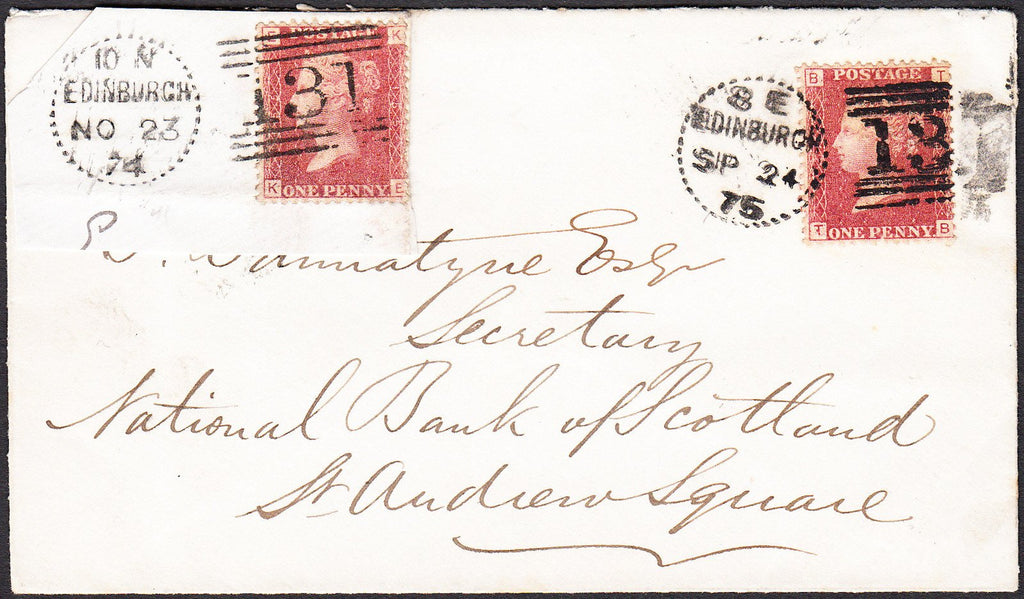 10 N
EDINBURGH
NO 23
74
E K
POSTAGE
131
K E
ONE PENNY
8 E
EDINBURGH
SP 24
75
B POSTAGE T
13
T ONE PENNY B
Esqr
Secretary
National Bank of Scotland
St Andrew Square